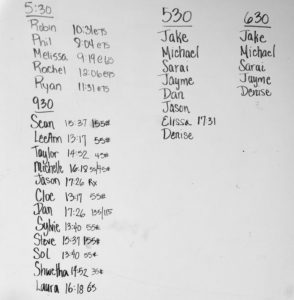 5:30
Robin 10:31 ETS
Phil 8:04 ETS
Melissa 9:19 65
Rachel 12:06 ETS
Ryan 11:31 ETS
930
Sean 15:37 155#
LeeAnn 13:17 55#
Taylor 14:52 45#
Michelle 16:18 55/45#
Jason 17:26 Rx
Cloe 13:17 55#
Dan 17:26 135/115
Sylvie 13:40 55#
Steve 15:37 155#
Sol 13:40 55#
Shwetha 14:52 35#
Laura 16:18 65
530
Jake
Michael
Sarai
Jayme
Dan
Jason
Elissa 17:31
Denise
630
Jake
Michael
Sarai
Jayme
Denise